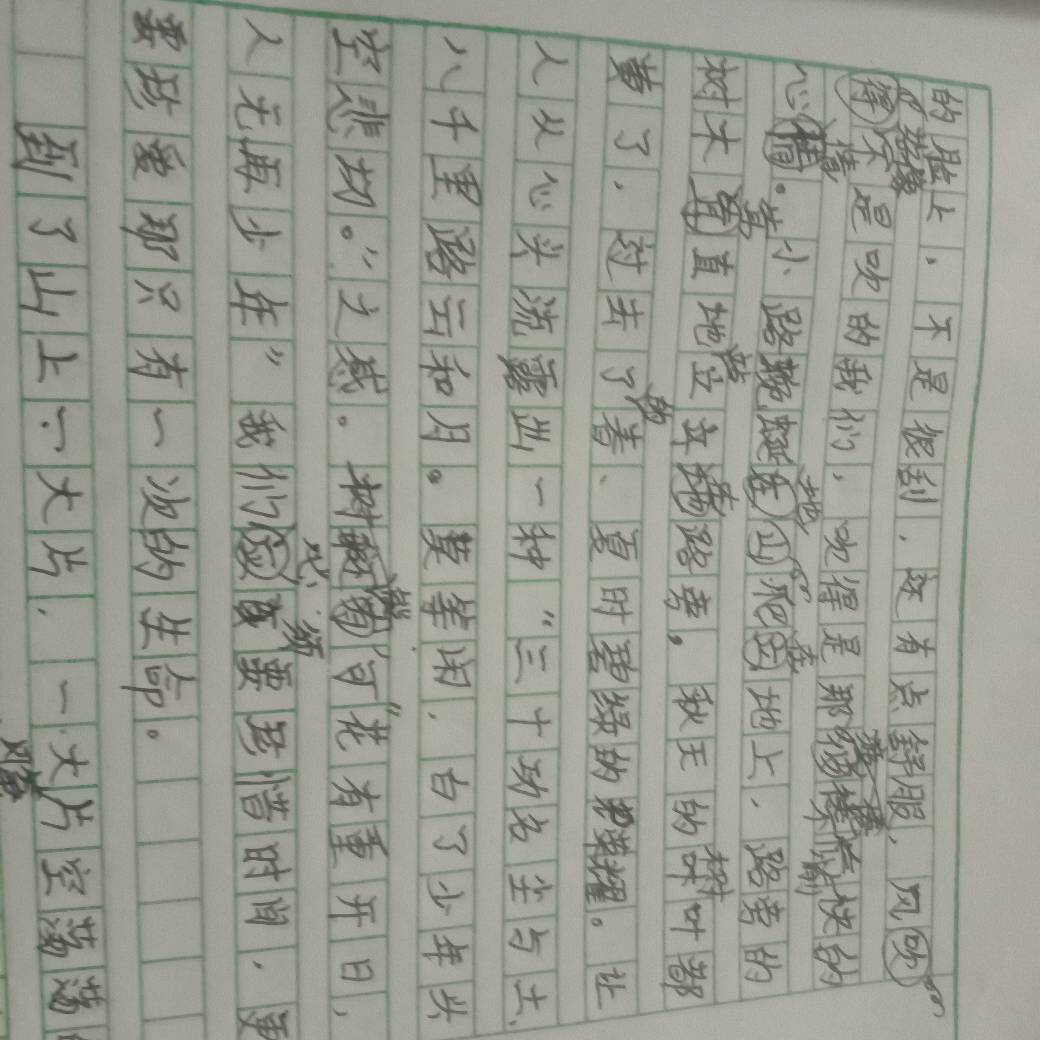 的脸上，不是很刮，还有点舒服，风吹
得不是吹的我们，吹得是那愉快的
心情。小路蜿蜒在山爬因地上，路旁的
树木笔直地立在路旁，秋天的树叶都
黄了，过去了春、夏时碧绿的耀。让
人从心头流露出一种“三十功名尘与土，
八千里路云和月。莫等闲，白了少年头
空悲切。”之感。树可“花有重开日，
人无再少年”我们应该要珍惜时间，更
要珍爱那只有一次的生命。
到了山上，一大片，一大片空荡荡